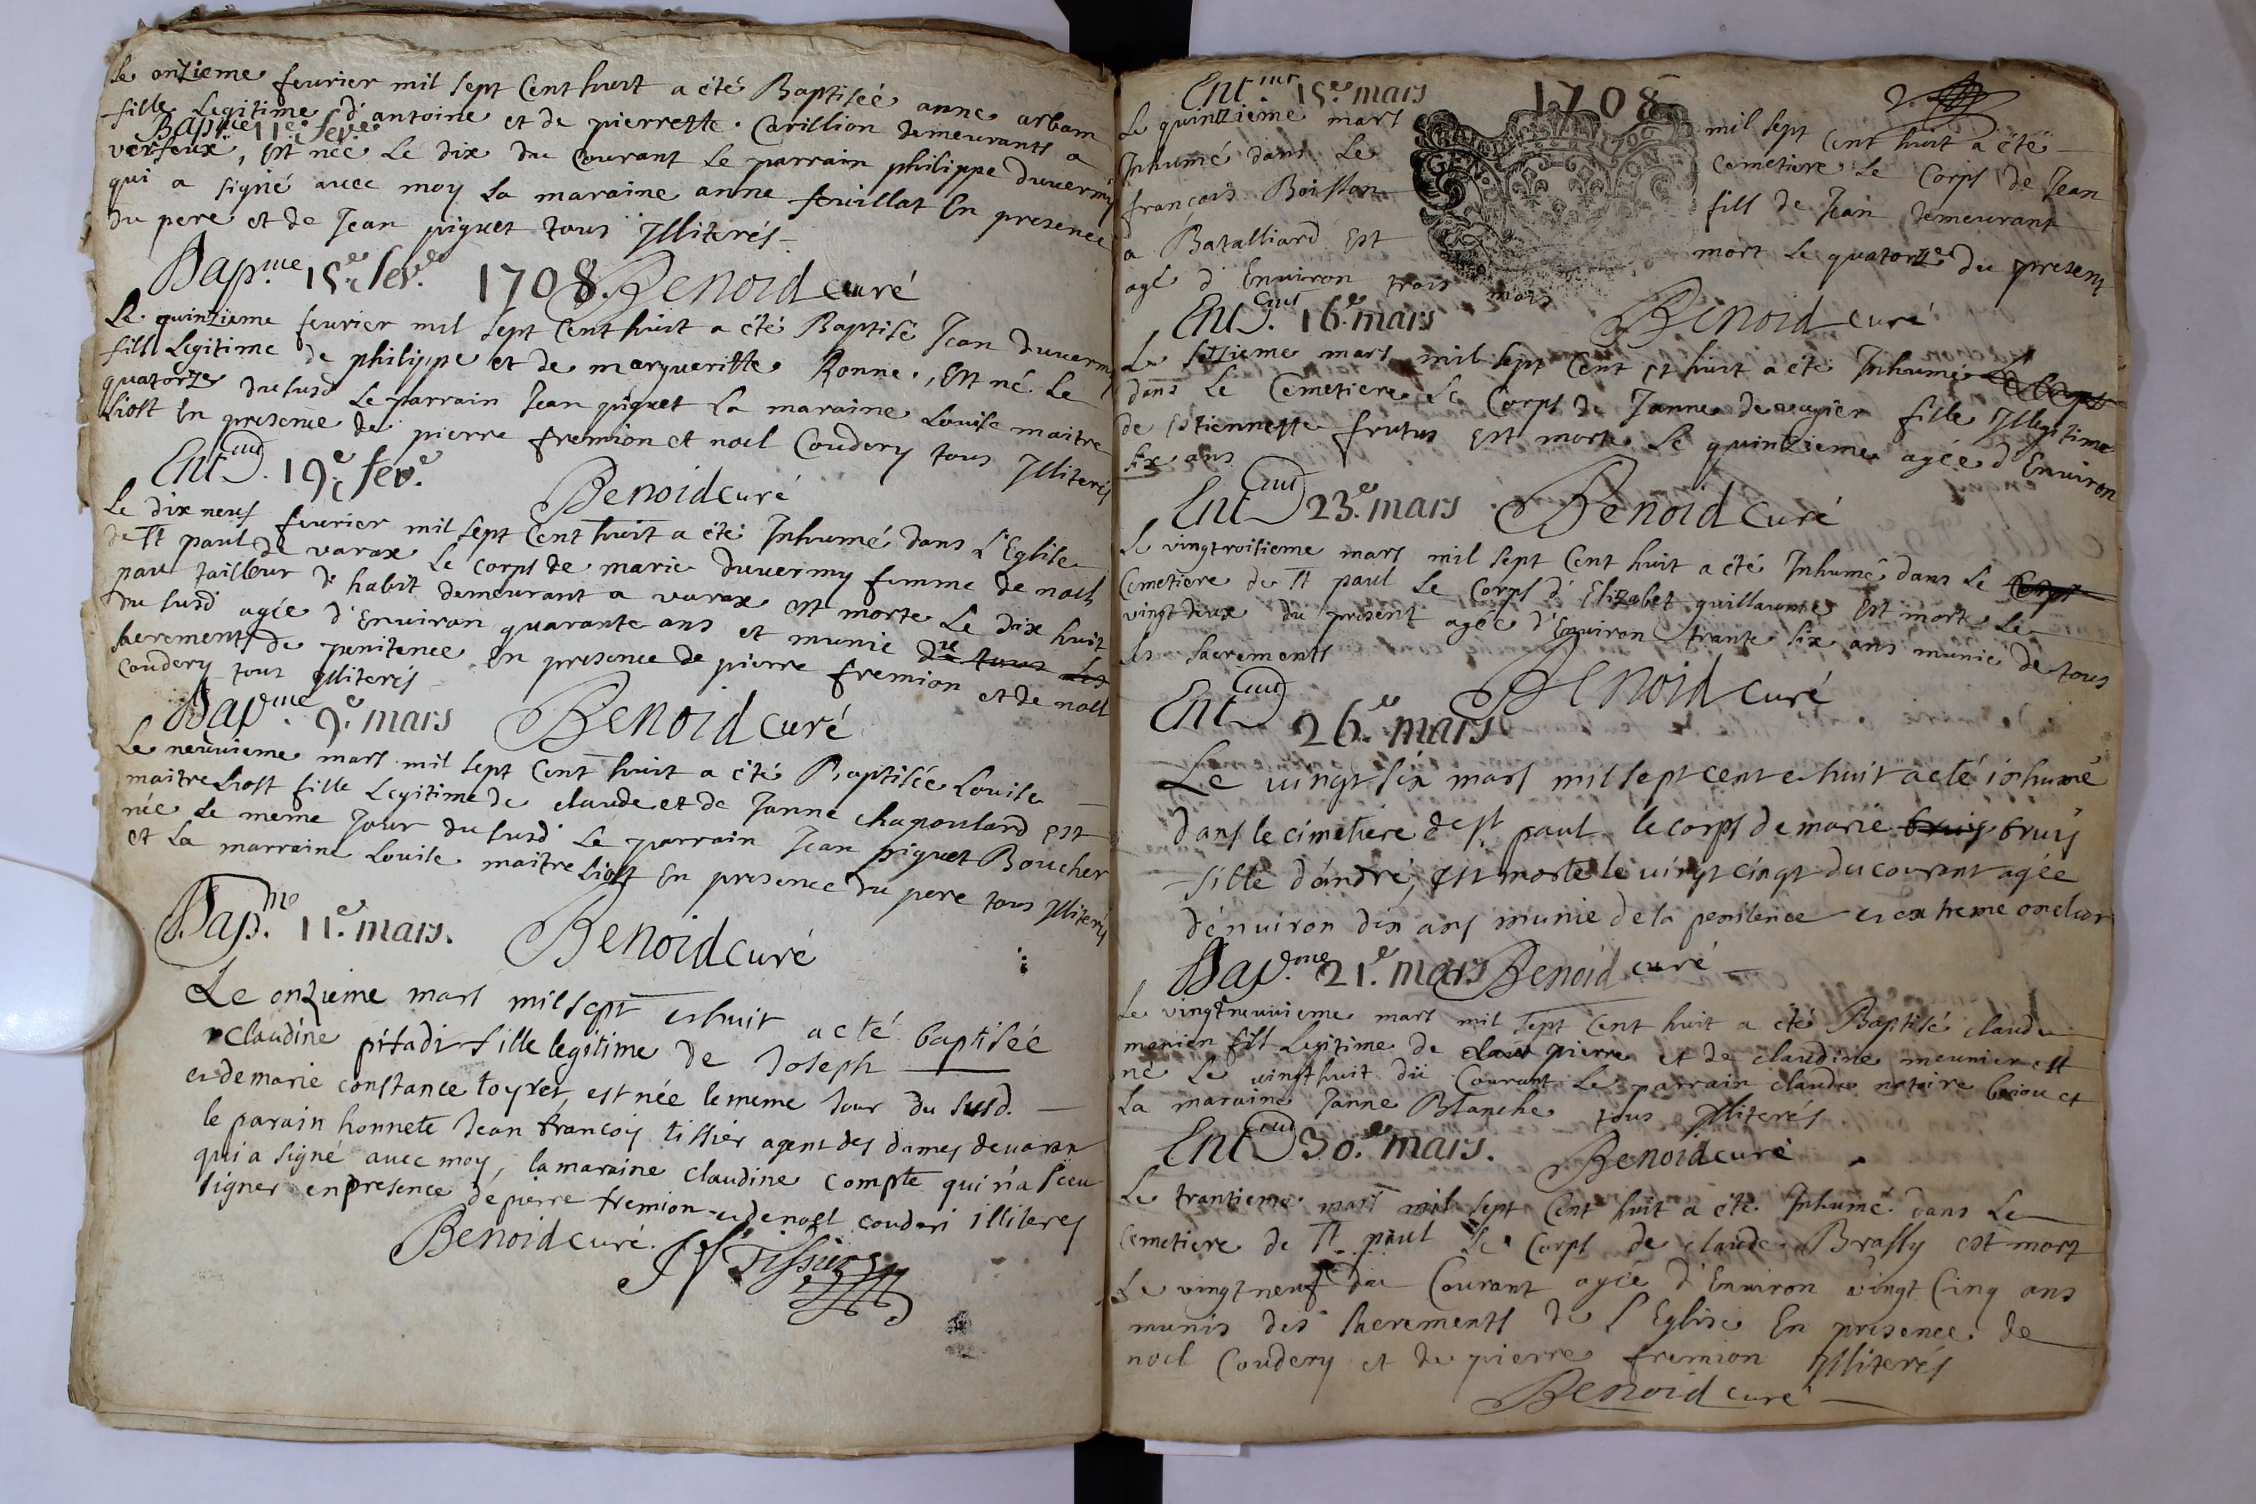 Le onzieme feurier mil sept Cent huit a été Baptiseé anne arbam
fille Legitime d'antoine et de pierrette Carillion demeurants a
Bap.me 11.e fev.e
verfeux, est neé Le dix du Courant Le parrain philippe duuermy
qui a signé auec moy La maraine anne feuillat En presence
du pere et de Jean piquet tous Illiterés
Bap.me 15.e fev.e 1708. Benoid curé
Le quinzieme feurier mil sept Cent huit a été Baptisé Jean duuermy
fils Legitime de philippe et de margueritte Ronne, est né Le
quatorze dususd Le parrain Jean piquet La maraine Louise maitre
Liost En presence de pierre fremion et noel Coudery tous Illiterés
Ent. 19.e fev.e Benoid curé
Le dix neuf feurier mil sept Cent huit a été Inhumé dans L'Eglise
de St paul de varax Le corps de marie duuermy femme de noel
pau tailleur d'habit demeurant a varax est morte Le dix huit
du susd ageé d'Enuiron quarante ans et munie de tous Les
sacrements de penitence En presence de pierre fremion et de noel
Coudery tous Illiterés
Bap.me 9.e mars Benoid curé
Le neuuieme mars mil sept Cent huit a été Baptiseé Louise
maitre Liost fille Legitime de claude et de Janne chapoulard est
née Le meme Jour du susd Le parrain Jean piquet Boucher
et La marraine Louise maitre Liost En presence du pere tous Illiterés
Bap.me 11.e mars. Benoid curé
Le onzieme mars mil sept et huit a eté baptisée
claudine pitadi fille legitime de Joseph
et de marie constance toyret, est née le meme Jour du susd.
le parain honnete Jean francois tissier agent des dames de varax
qui a signé auec moy, la maraine claudine compte qui n'a sceu
signer en presence de pierre fremion et de noel couderi illiteres
Benoid curé. JF Tissier
Ent. 15.e mars 1708 2.
Le quinzieme mars mil sept Cent huit a été
Inhumé dans Le Cemetiere Le Corps de Jean
françois Boisson fils de Jean demeurant
a Batalliard est mort Le quatorze du present
agé d'Enuiron trois mois
Ent. 16.e mars Benoid curé
Le sezieme mars mil sept Cent et huit a été Inhumé Le Corps
dans Le Cemetiere Le Corps de Janne deuagier fille Illegitime
de Etiennette frutus est morte Le quinzieme ageé d'Enuiron
six ans
Ent. 23.e mars Benoid curé
Le vingtroisieme mars mil sept Cent huit a été Inhumé dans Le Corps
Cemetiere de St paul Le Corps d'Elizabet guillaume est morte Le
vingt deux du present ageé d'Enuiron trante six ans munie de tous
Les sacrements
Ent. 26.e mars Benoid curé
Le uingt six mars mil sept cent et huit a eté inhumé
dans le cimetiere de st paul le corps de marie bruis bruis
fille d'andre, est morte le uingt cinqt du courant agée
d'enuiron dix ans munie de la penitence et extreme onction
Bap.me 21.e mars Benoid curé
Le vingtneuuieme mars mil sept Cent huit a été Baptisé claude
fils Legitime de pierre et de claudine meunier est
né Le uingthuit du Courant Le parrain claude notaire et
La maraine Janne Blanche tous Illiterés
Ent. 30.e mars. Benoid curé
Le trantieme mars mil sept Cent huit a été Inhumé dans Le
Cemetiere de St paul Le Corps de claude Brassy est mort
Le vingtneuf du Courant ageé d'Enuiron vingt Cinq ans
munis des sacrements de L'Eglise En presence de
noel Coudery et de pierre fremion Illiterés
Benoid curé